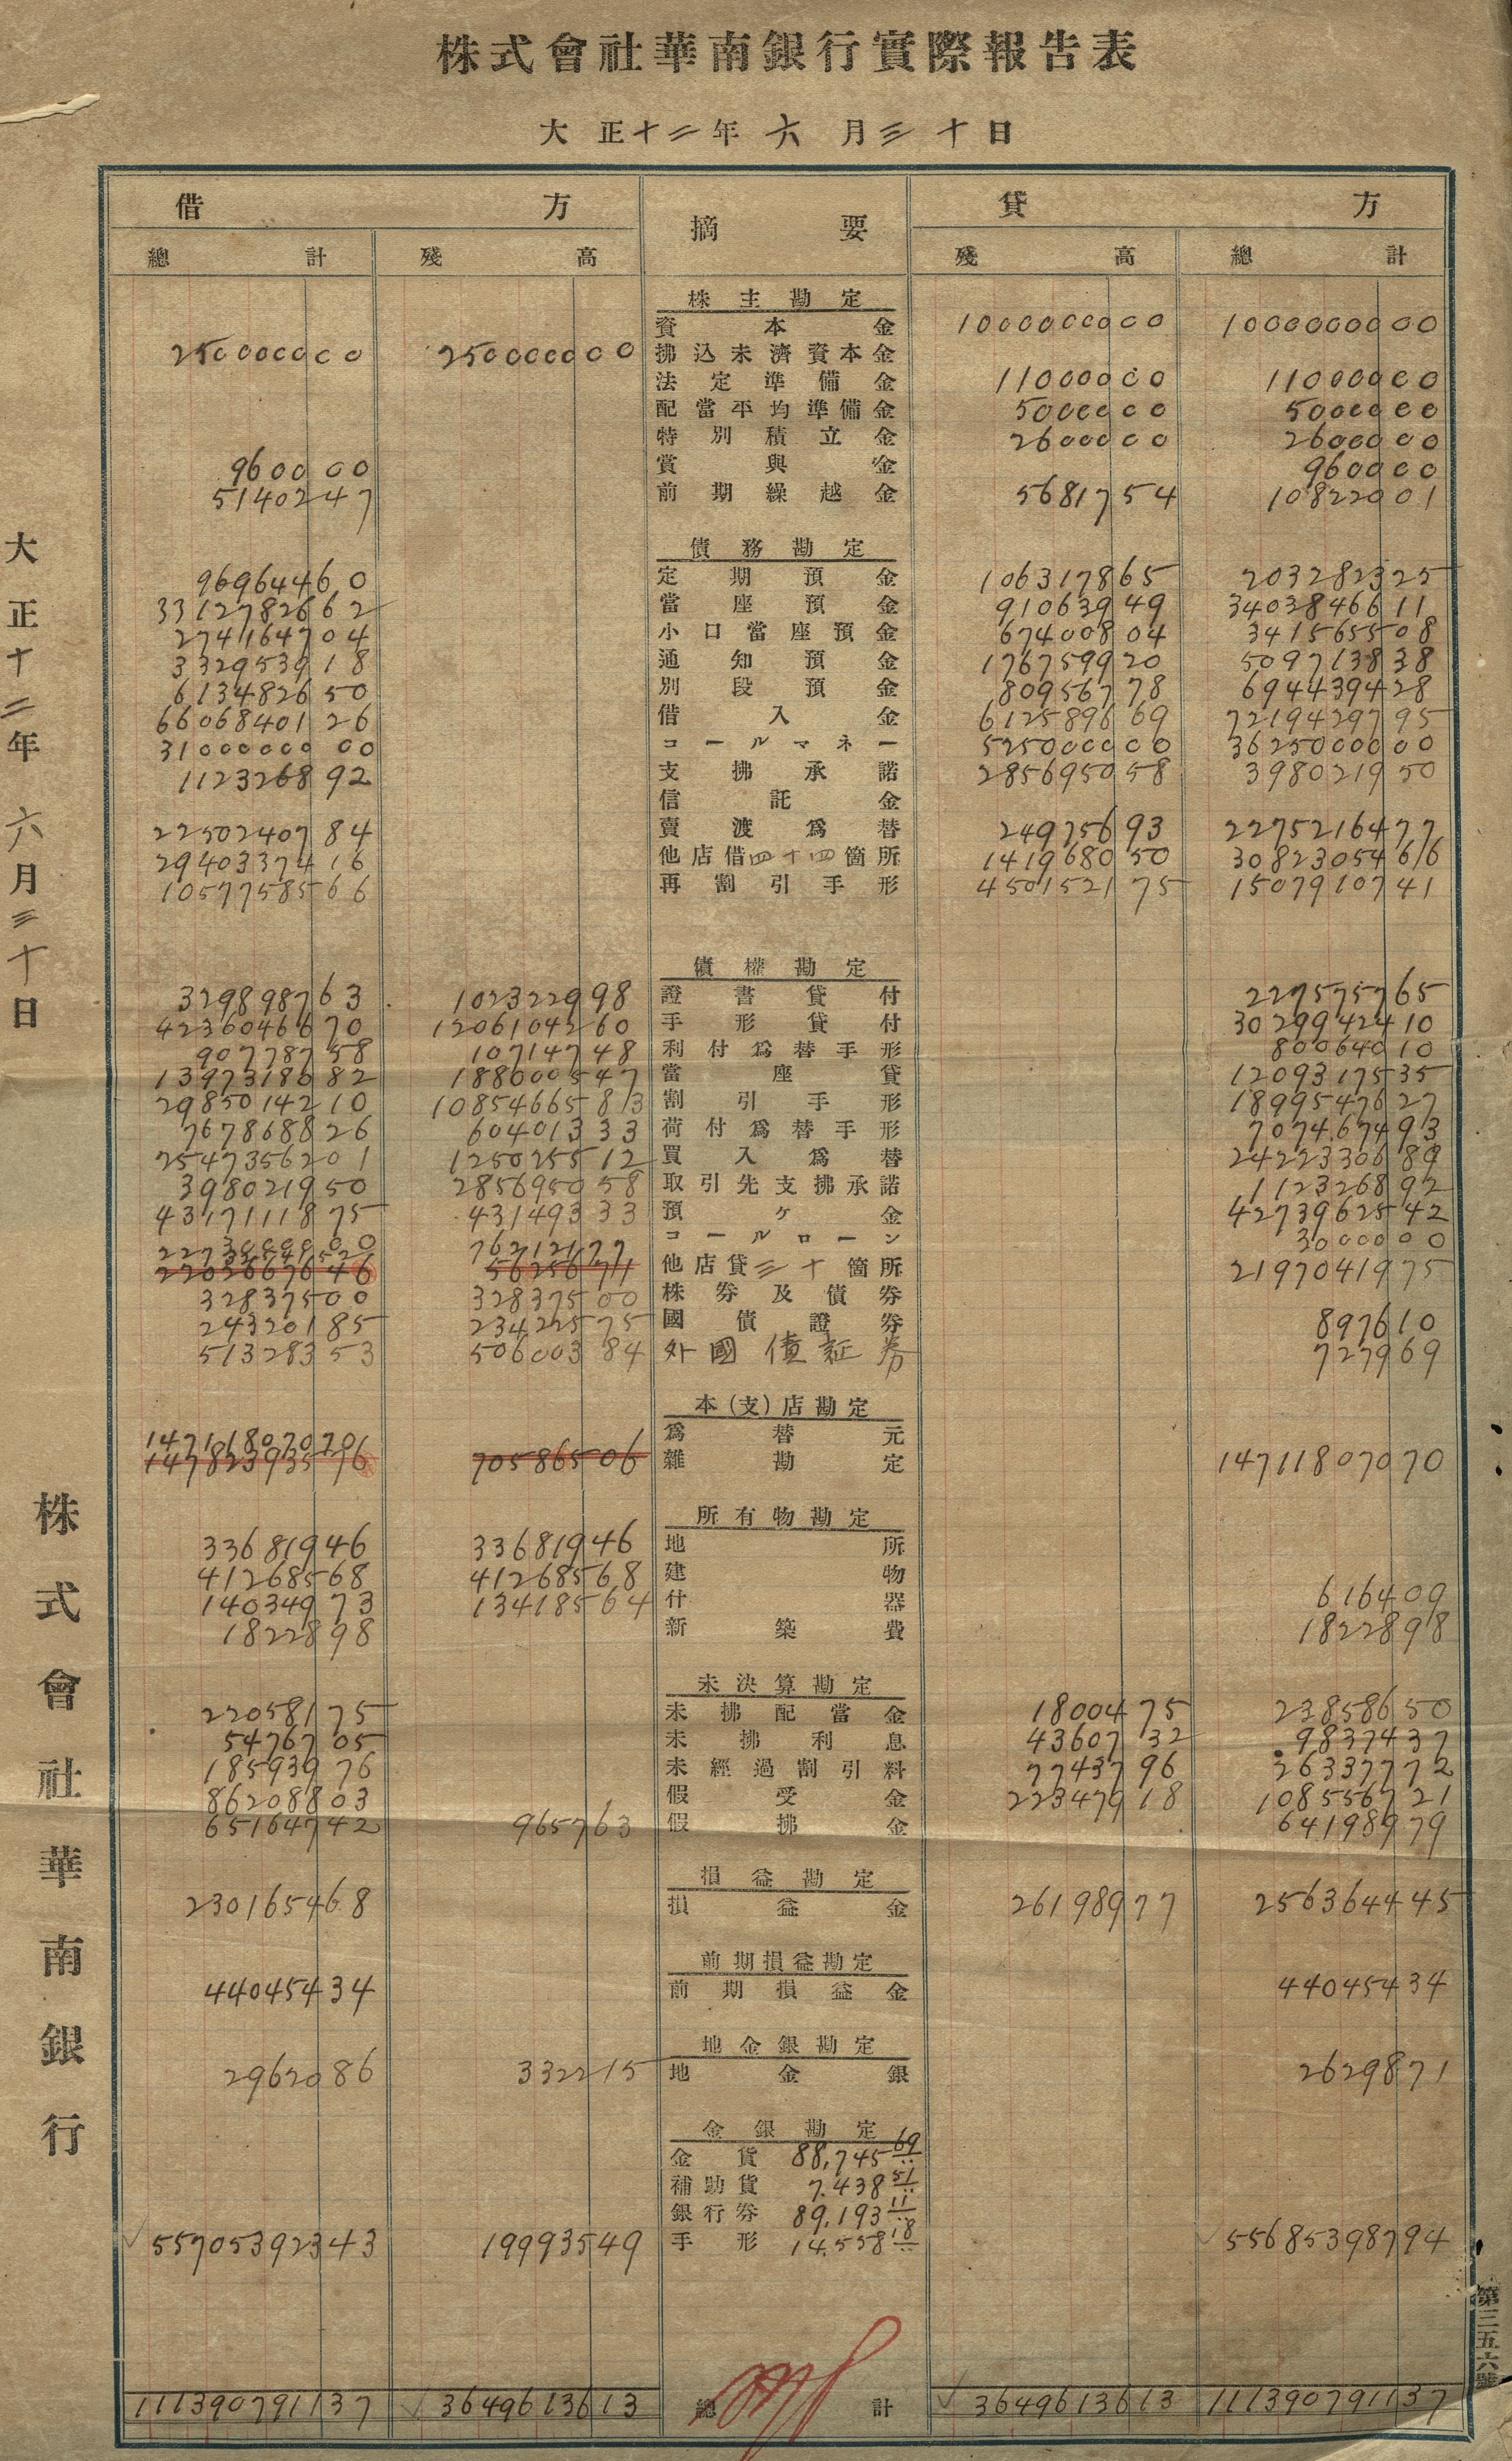 株式會社華南銀行實際報告表
大正十二年六月三十日
借方 摘要 貸方
總計 殘高 殘高 總計
株主勘定
資本金 1000000000 1000000000
250000000 250000000 拂込未濟資本金
法定準備金 11000000 11000000
配當平均準備金 5000000 5000000
特別積立金 2600000 2600000
960000 賞與金 960000
5140247 前期繰越金 5681754 10822001
債務勘定
96964460 定期預金 106317865 203282325
3312782662 當座預金 91063949 3403846611
274164704 小口當座預金 67400804 341565508
332953918 通知預金 176759920 509713838
613482650 別段預金 80956778 694439428
6606840126 借入金 612589669 7219429795
3100000000 コールマネー 525000000 3625000000
112326892 支拂承諾 285695058 398021950
信託金
2250240784 賣渡爲替 24975693 2275216477
2940337416 他店借四十四箇所 141968050 3082305466
1057758566 再割引手形 450152175 1507910741
債權勘定
329898763 102322998 證書貸付 227575765
4236046670 1206104260 手形貸付 3029942410
90778758 10714748 利付爲替手形 80064010
1397318082 188000547 當座貸 1209317535
2985014210 1085466583 割引手形 1899547627
767868826 60401333 荷付爲替手形 707467493
2547356201 125025512 買入爲替 2422330689
398021950 285695058 取引先支拂承諾 112326892
4317111875 43149333 預ケ金 4273962542
3000000 コールローン 3000000
76212177 他店貸三十箇所 2197041975
32837500 32837500 株券及債券
24320185 23422575 國債證券 897610
51328353 50600384 外國債証券 727969
本(支)店勘定
爲替元
14711807070 雜勘定 14711807070
所有物勘定
33681946 33681946 地所
41268568 41268568 建物
14034973 13418564 什器 616409
1822898 新築費 1822898
未決算勘定
22058175 未拂配當金 1800475 23858650
5476705 未拂利息 4360732 9837437
18593976 未經過割引料 7743796 26337772
86208803 假受金 22347918 108556721
65164742 965763 假拂金 64198979
損益勘定
230165468 損益金 26198977 256364445
前期損益勘定
44045434 前期損益金 44045434
地金銀勘定
2962086 332215 地金銀 2629871
金銀勘定
金貨 88,745 69
補助貨 7,438 51
銀行券 89,193 11
55705392343 19993549 手形 14,558 18 55685398794
111390791137 3649613613 總計 3649613613 111390791137
大正十二年六月三十日
株式會社華南銀行
第三五六號